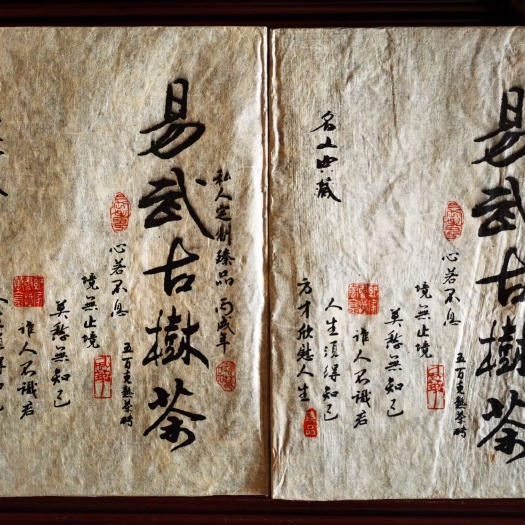 易武古樹茶
私人定制臻品 丙戌年
心若不息
境無止境
五百克熟茶磚
莫愁無知己
誰人不識君
易武古樹茶
名山典藏
心若不息
境無止境
五百克熟茶磚
莫愁無知己
誰人不識君
人生須得知己
方才欣慰人生